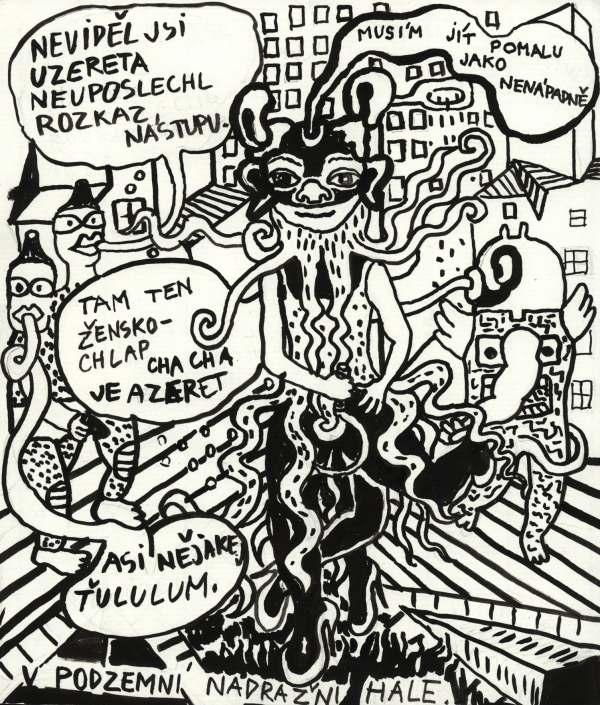 NEVIDĚL JSI
UZERETA
NEUPOSLECHL
ROZKAZ
NÁSTUPU.
MUSÍM JÍT POMALU
JAKO
NENÁPADNĚ
TAM TEN
ŽENSKO-
CHLAP CHA CHA
JE AZERET
ASI NĚJAKEJ
ŤULULUM.
V PODZEMNÍ NÁDRAŽNÍ HALE.